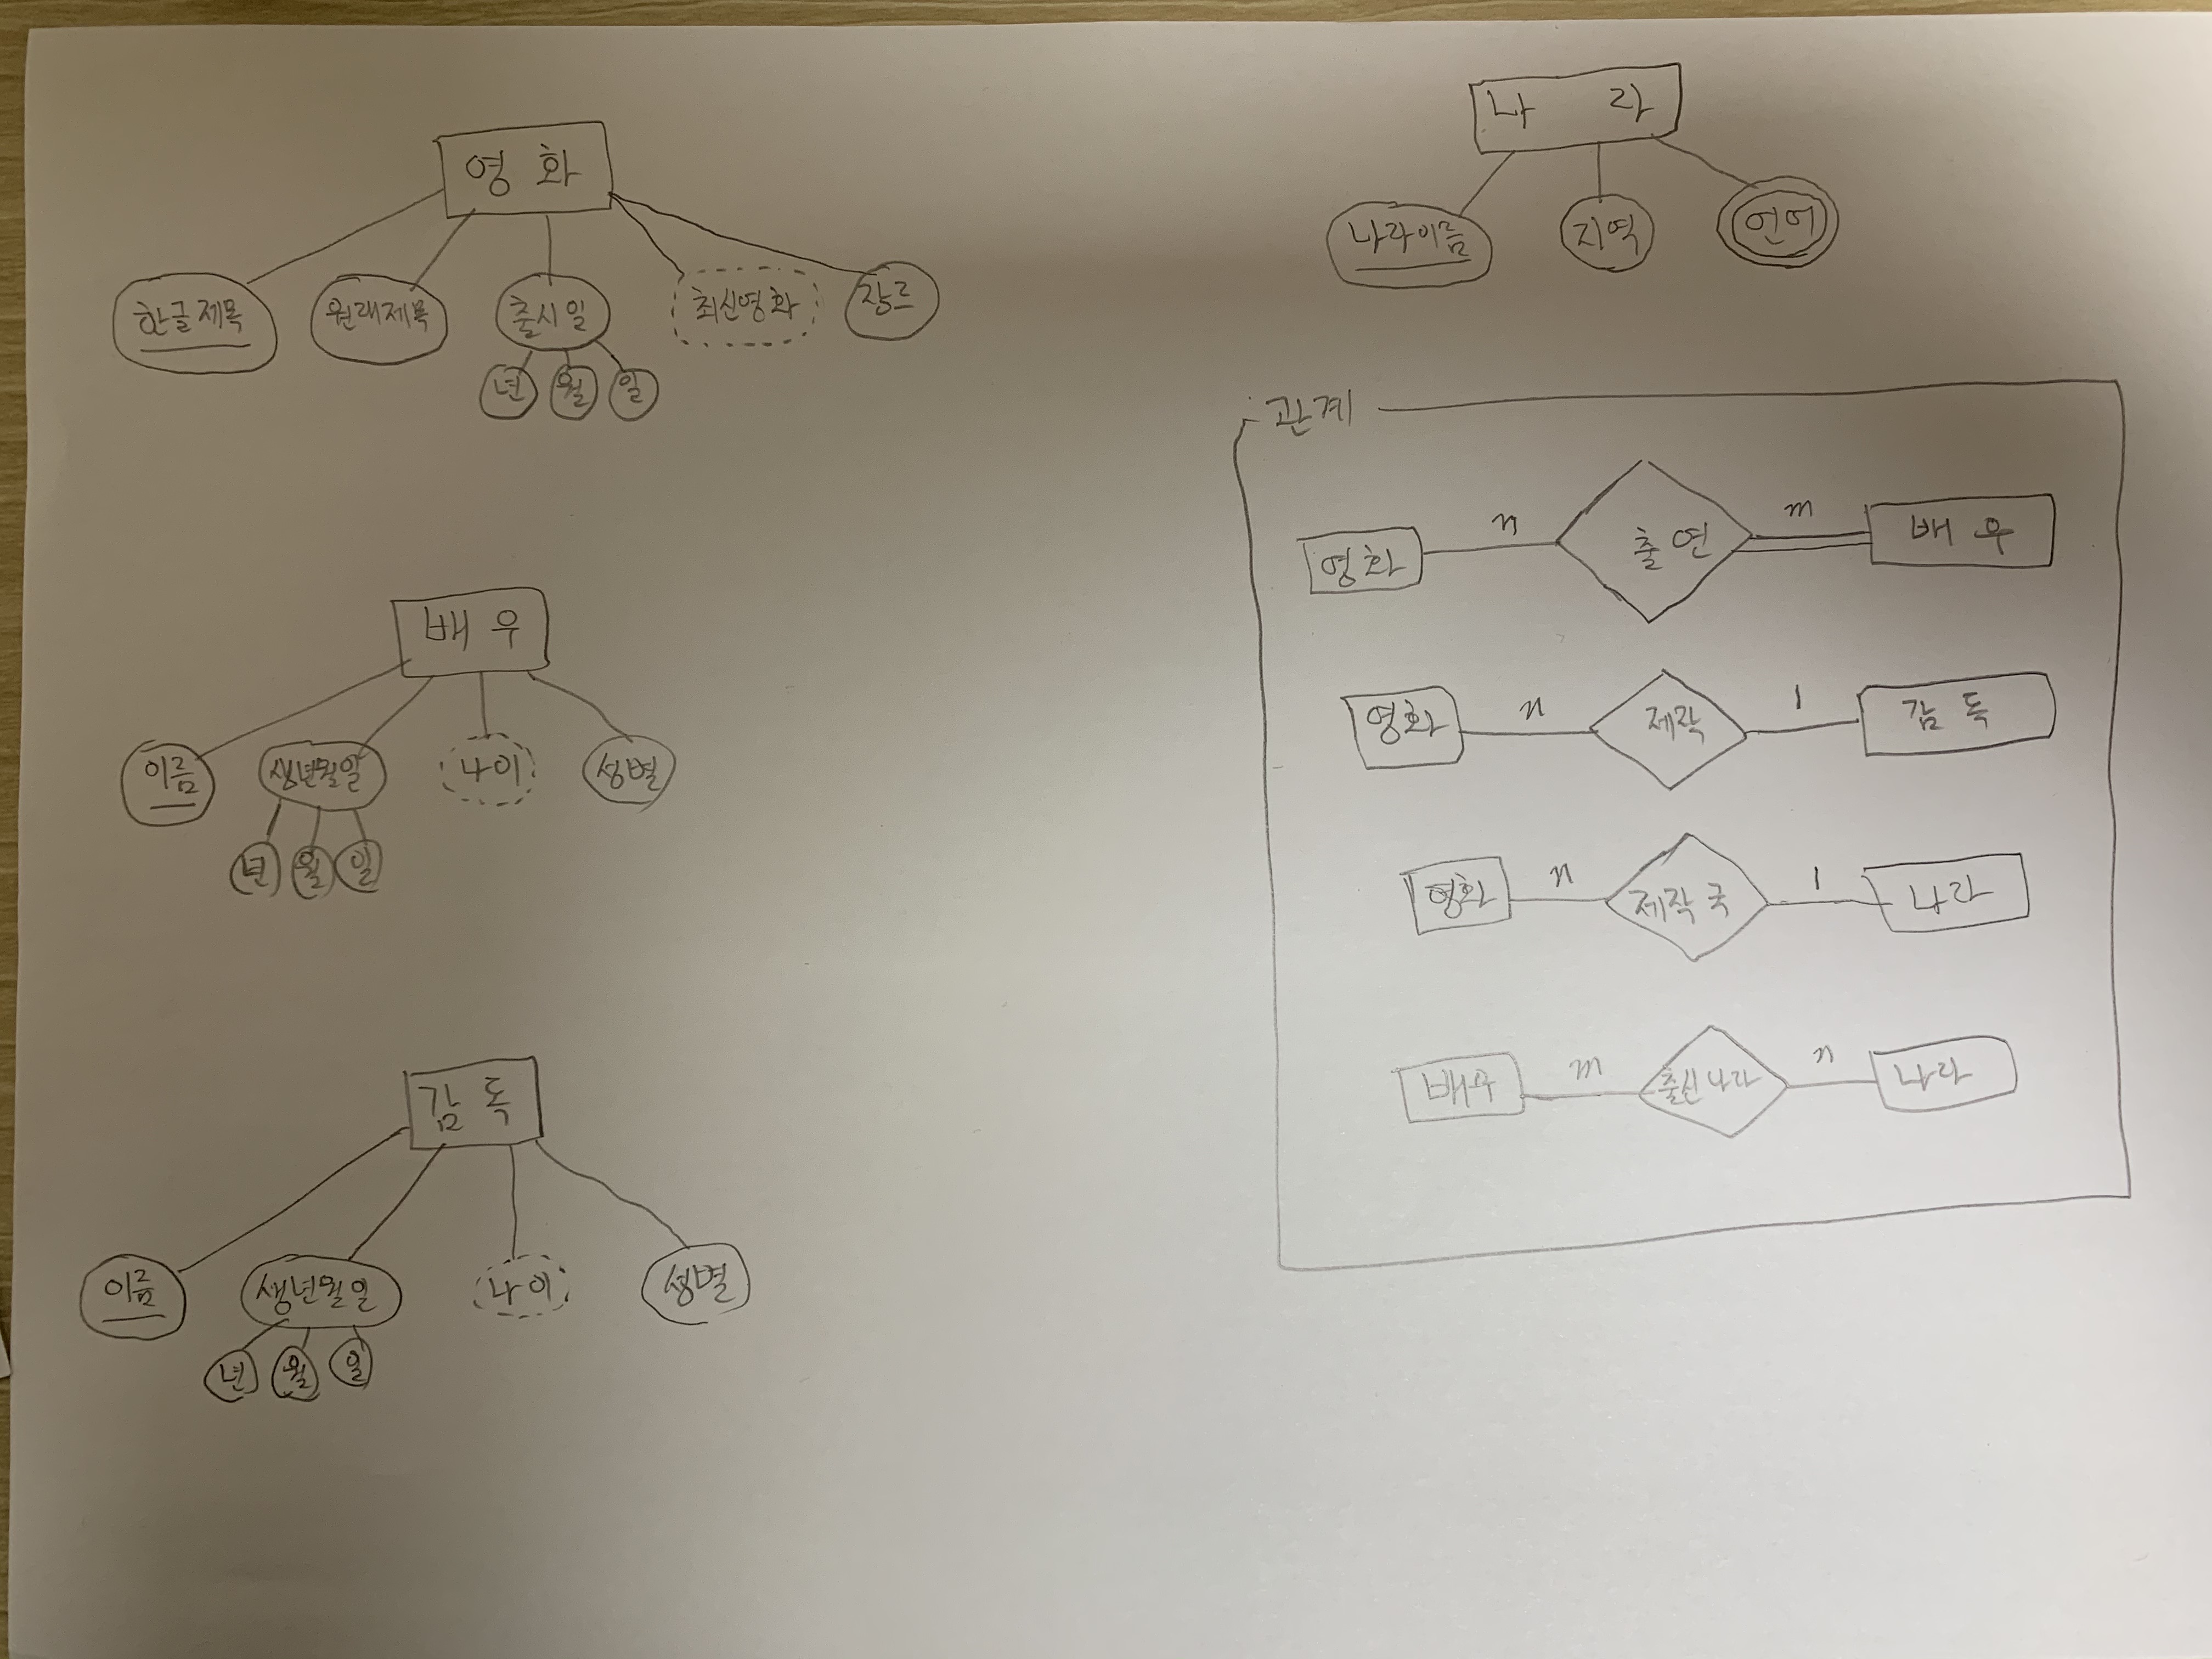 영화
한글제목
원래제목
출시일
년
월
일
최신영화
장르
배우
이름
생년월일
년
월
일
나이
성별
감독
이름
생년월일
년
월
일
나이
성별
나라
나라이름
지역
언어
관계
영화 n 출연 m 배우
영화 n 제작 1 감독
영화 n 제작국 1 나라
배우 m 출신나라 n 나라